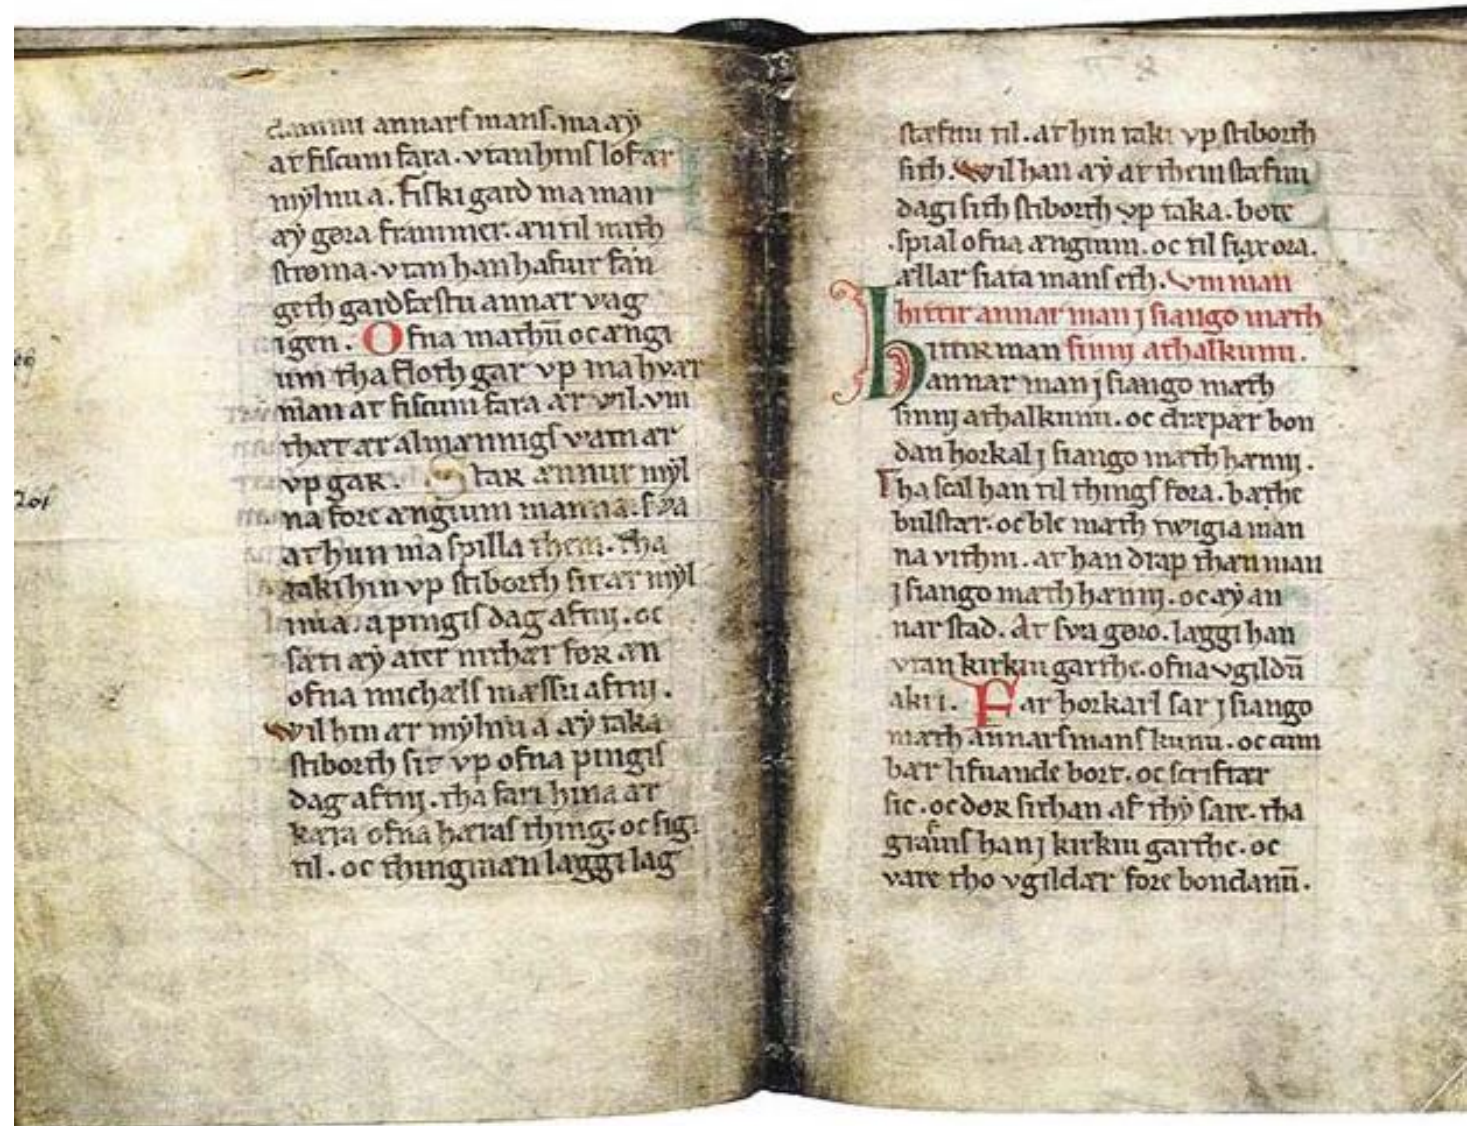 dammi annarſ manſ. ma aẏ
at fiſcum fara. vtan hinſ lof ær
mẏlnu a. Fiſki gard ma man
aẏ gøra frammer. æn til mith
ſtrøma. vtan han hafuir fan
geth gardfæſtu annær vag
igen. Ofna mathū oc ængi
um tha floth gar vp ma hvær
man at fiſcum fara ær vil. vm
thæt ær almænnigſ vatn ær
vp gaʀ. Staʀ ænnur mẏl
na fore ængium manna. ſva
at hun ma ſpilla them. tha
taki hin vp ſtiborth ſit ær mẏl
nu a. a pingiſ dag aftnj. oc
ſæti aẏ ater nithær foʀ æn
ofna michælſ mæſſu aftnj.
wil hin ær mẏlnu a aẏ taka
ſtiborth ſit vp ofna pingiſ
dag aftnj. tha fari hina ær
kæra ofna hæraſ thing. oc ſigi
til. oc thingmæn laggi lag
ſtæfnu til. at hin taki vp ſtiborth
ſith. wil han aẏ at them ſtæfnu
dagi ſith ſtiborth vp taka. bøte
ſpial ofna ængium. oc til ſiax ora.
ællar ſiata manſ eth. Vm man
hittir annar man j ſiango mæth
ſinnj athalkunu.
hittiʀ man
annar man j ſiango mæth
ſinnj athalkunu. oc dræpær bon
dan horkal j ſiango mæth hænnj.
Tha ſcal han til thingſ føra. bæthe
bulſtær. oc ble mæth twiggia man
na vithni. at han drap thæn man
j ſiango mæth hænnj. oc aẏ an
nar ſtad. At ſva gøro. laggi han
vtan kirkiu garthe. ofna vgildū
akri. Far horkarl ſar j ſiango
mæth annarſ manſ kunu. oc cum
bær lifuande bort. oc ſcriftær
ſic. oc døʀ ſithan af thẏ ſare. tha
grafuiſ han j kirkiu garthe. oc
vare tho vgildær fore bondanū.